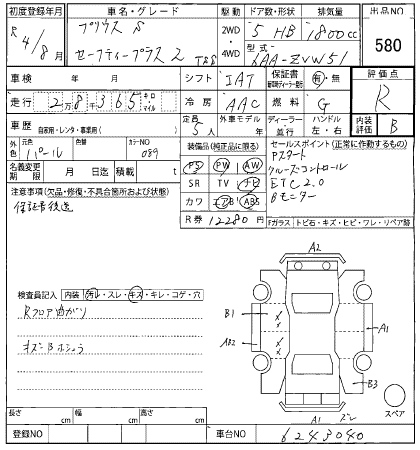 初度登録年月 車名・グレード 駆動 ドア数・形状 排気量 出品NO
R 4/8月 プリウス S 2WD 4WD 5 HB 1800cc 580
セーフティープラス 2 型式 6AA-ZVW51
車検 年 月 シフト IAT 保証書 有・無 評価点
走行 2万8千365 キロ マイル 冷房 AAC 燃料 G R
車歴 自家用・レンタ・事業用( ) 定員 5人 外車モデル 年 ディーラー 並行 ハンドル 左・右 内装評価 B
外色 元色 パール 色替 カラーNO 089 装備品(純正品に限る) セールスポイント(正常に作動するもの)
名義変更期限 月 日迄 積載 t PS PW AW Pスタート
注意事項(欠品・修復・不具合箇所および状態) SR TV ナビ クルーズコントロール
保証書後送 カワ エアB ABS ETC2.0
R券 12280円 Bモニター
Fガラス トビ石・キズ・ヒビ・ワレ・リペア跡
検査員記入 内装 汚レ・スレ・キズ・キレ・コゲ・穴
Rフロア曲がり
A2
B1
A1
AB2
B3
A1
スペア
長さ cm 幅 cm 高さ cm
登録NO 車台NO 6243040